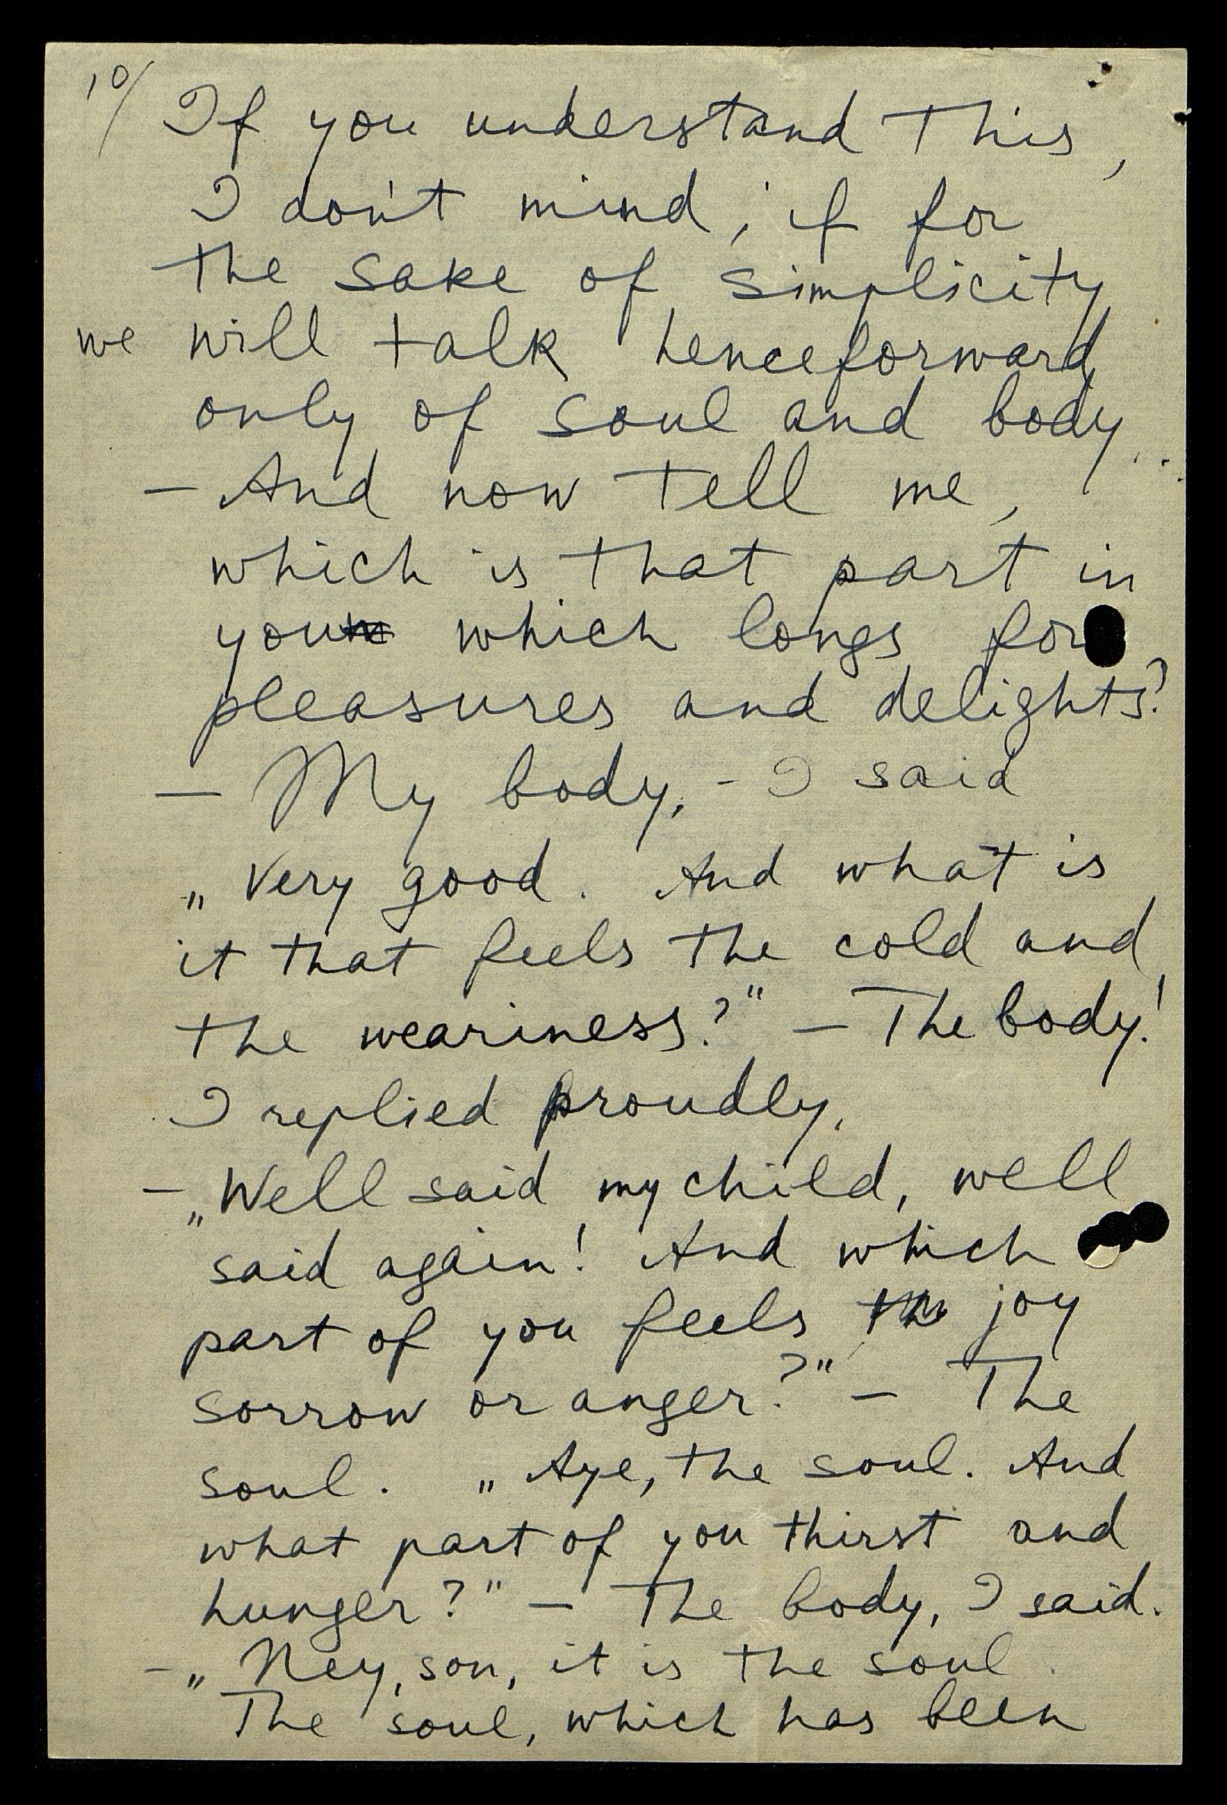 10/ If you understand this,
I don't mind, if for
the sake of simplicity
we will talk henceforward
only of soul and body.
– And now tell me,
which is that part in
you which longs for
pleasures and delights?
– My body, – I said
„Very good. And what is
it that feels the cold and
the weariness?" – The body!
I replied proudly.
– „Well said my child, well
said again! And which
part of you feels the joy
sorrow or anger?" – The
soul. „Aye, the soul. And
what part of you thirst and
hunger?" – The body, I said.
– „Ney, son, it is the soul.
The soul, which has been